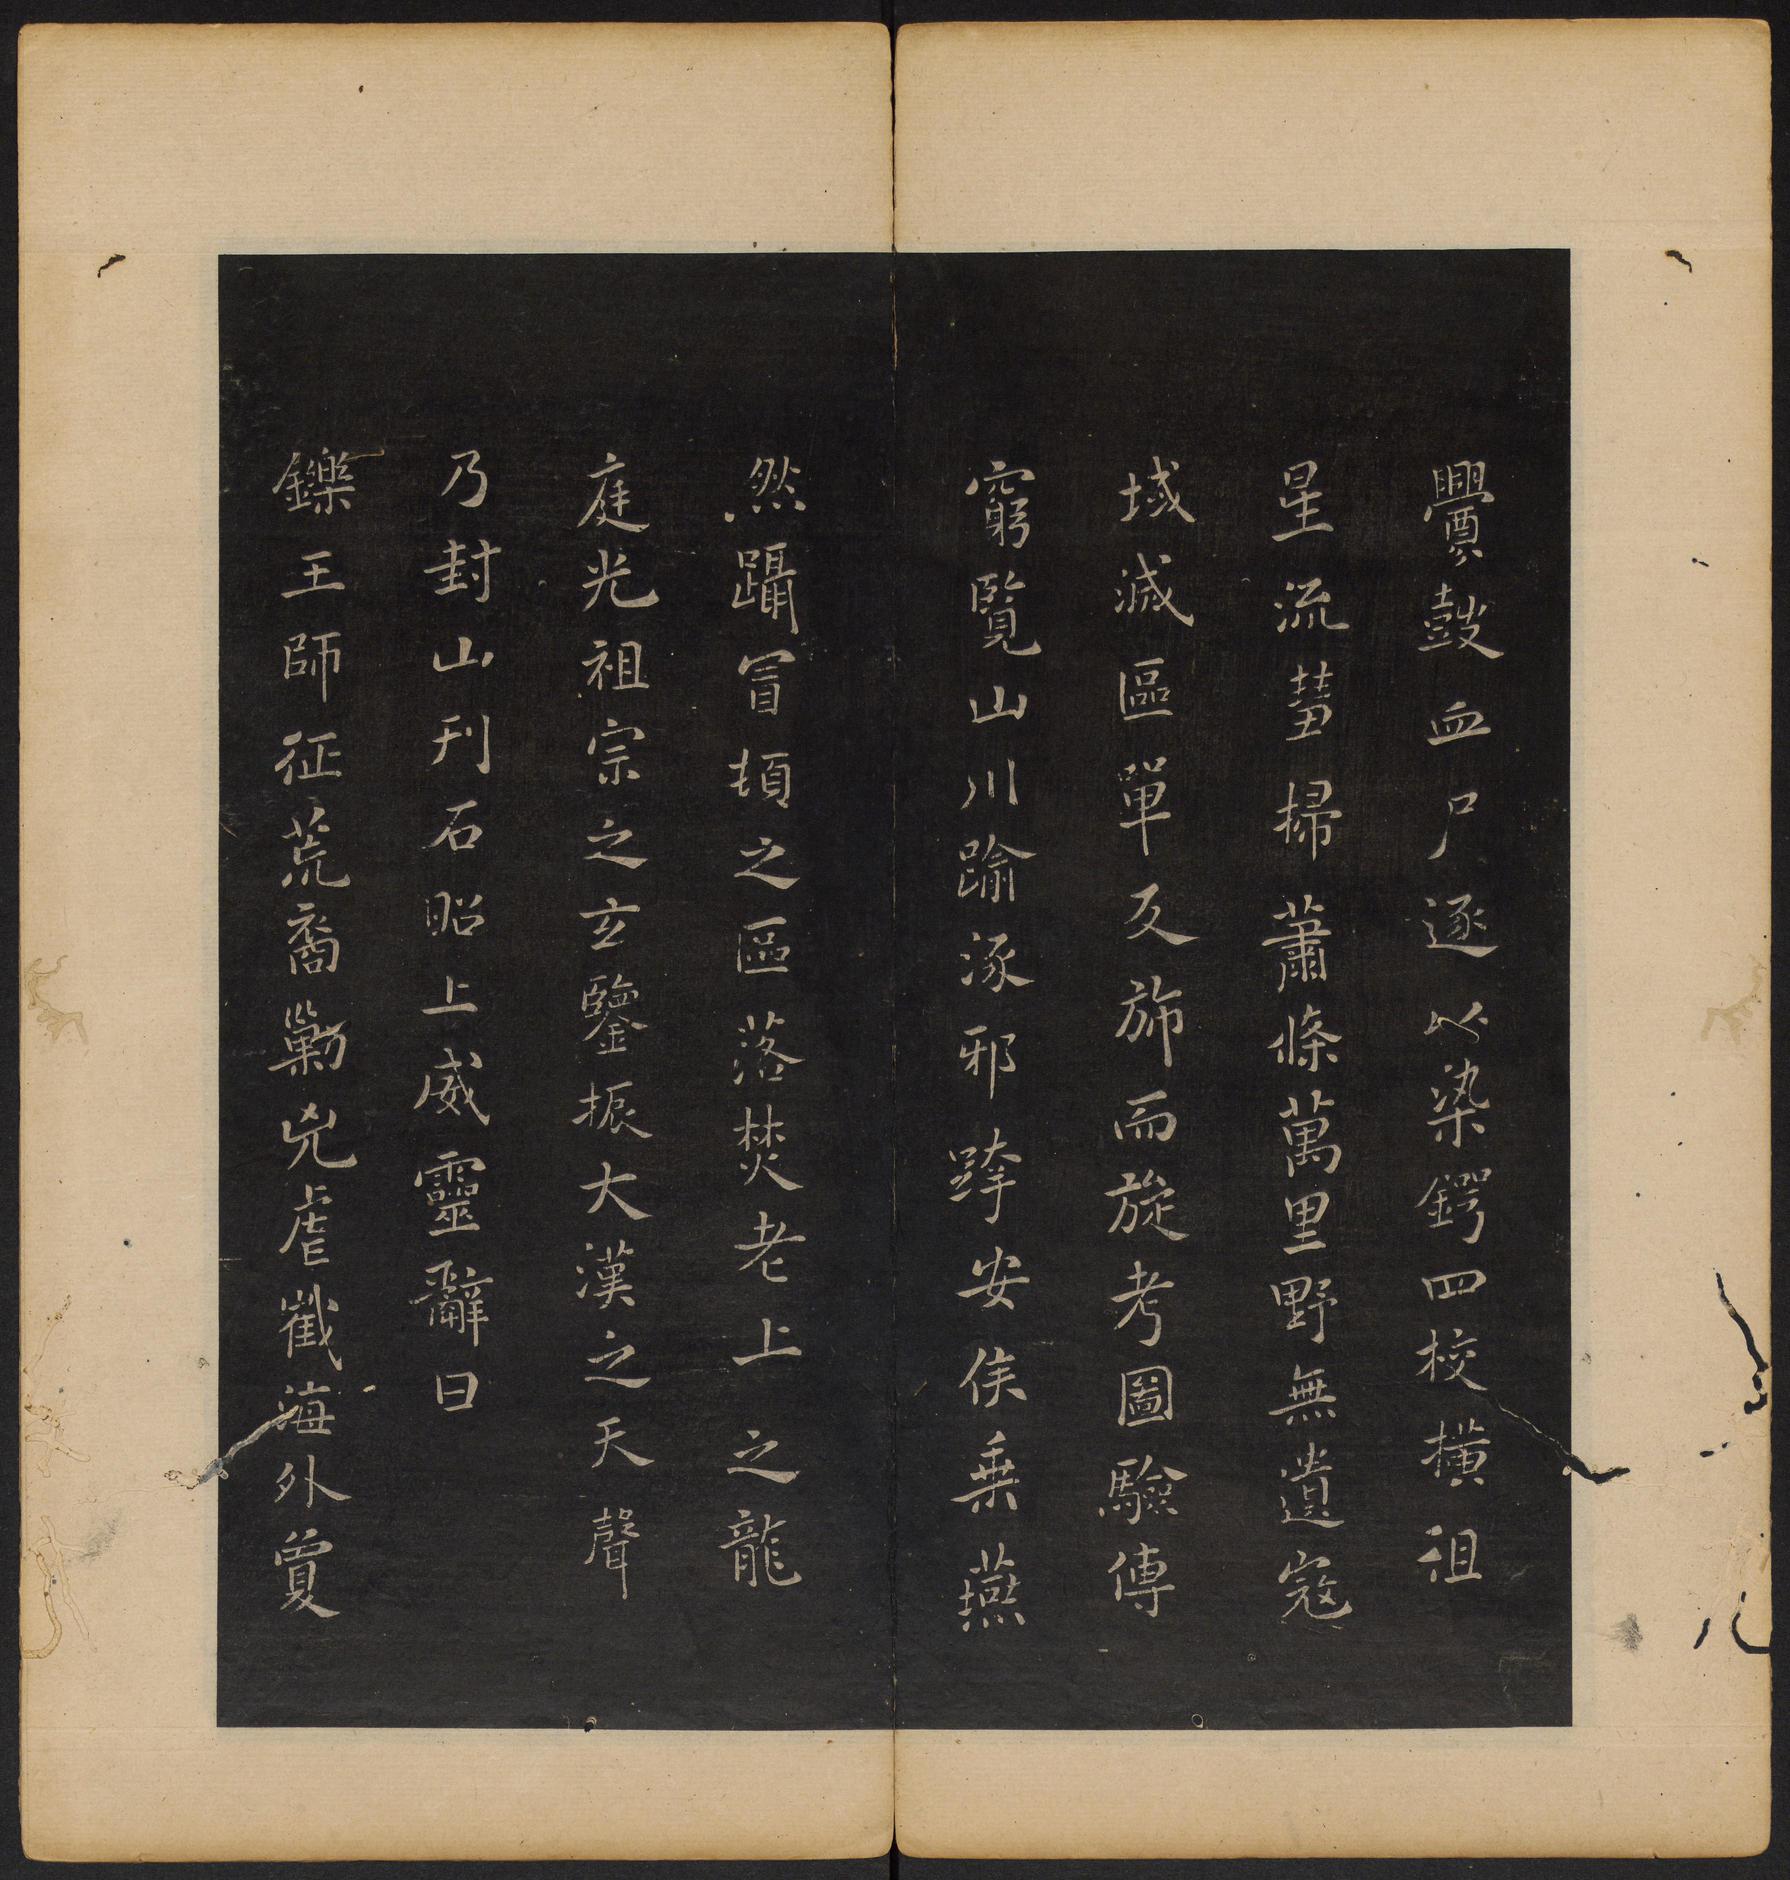 釁鼓血尸逐以染鍔四校橫徂
星流彗掃蕭條萬里野無遺寇
域滅區單反旆而旋考圖驗傳
窮覽山川踰涿邪跨安侯乗燕
然躡冒頓之區落焚老上之龍
庭光祖宗之玄鑒振大漢之天聲
乃封山刊石昭上威靈辭曰
鑠王師征荒裔勦兇虐截海外夐